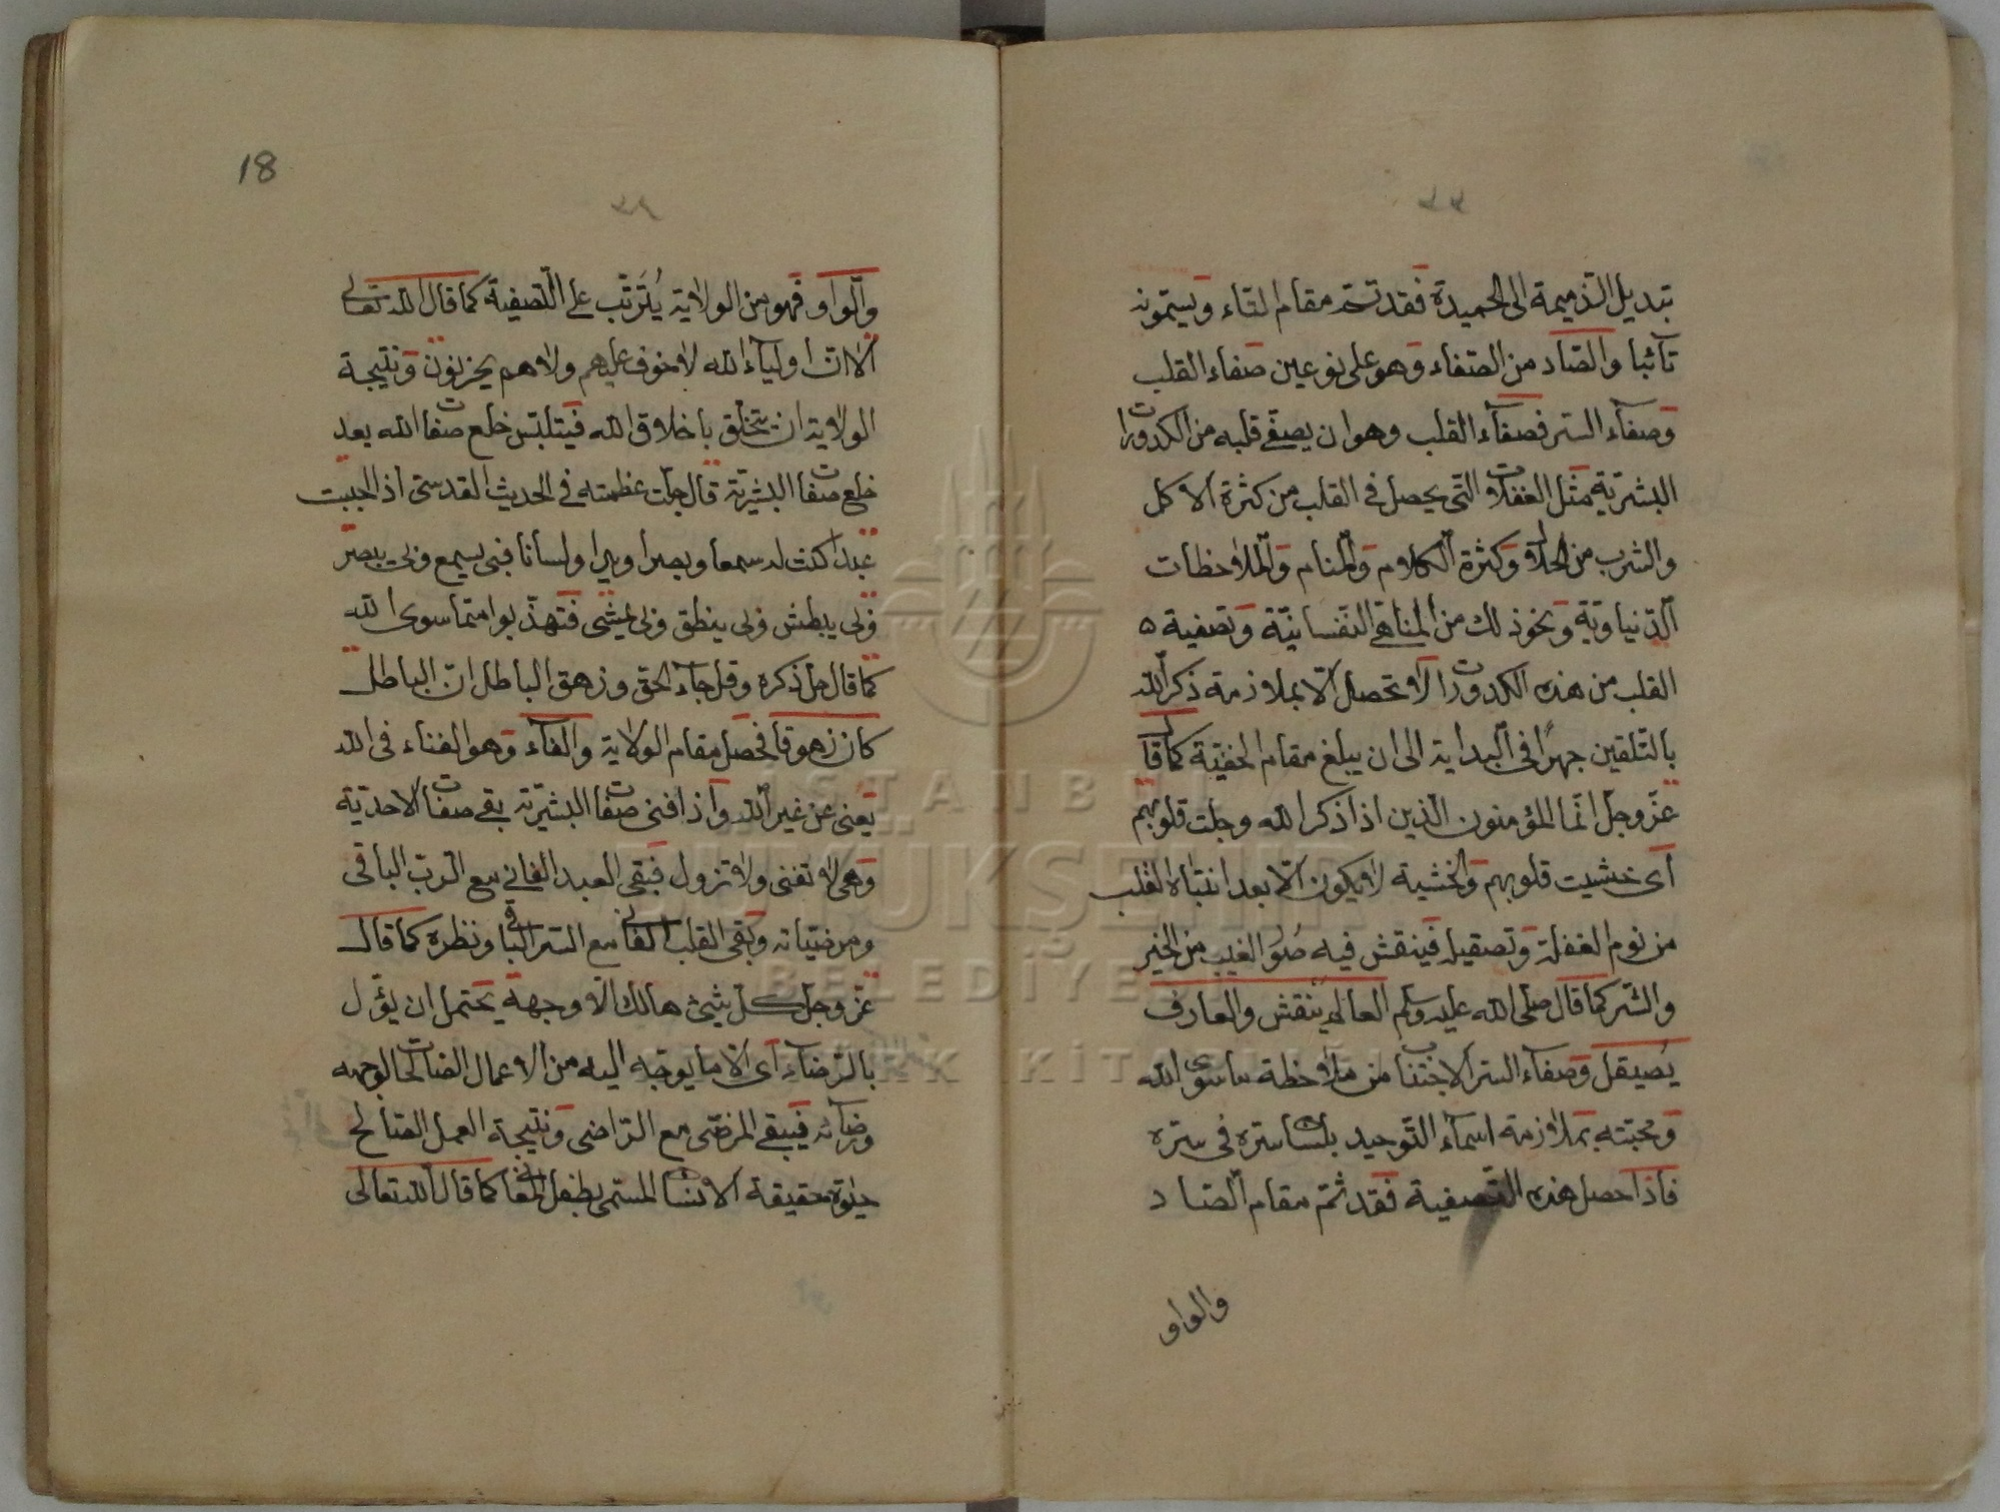 تبديل الذميمة الى الحميدة فقد تمت مقام التاء ويسمونه
تآئبا والصاد من الصفاء وهو على نوعين صفاء القلب
وصفآء السر فصفآء القلب وهو ان يصفى قلبه من الكدورات
البشرية مثل الغفلات التى يحصل فى القلب من كثرة الاكل
والشرب من الحلال وكثرة الكلام والمنام والملاحظات
الدنياوية ونحو ذلك من المناهى النفسانية وتصفية ه
القلب من هذه الكدورات لا تحصل الا بملازمة ذكر الله
بالتلقين جهرا فى البداية الى ان يبلغ مقام الخفية كما قال
عز وجل انما المؤمنون الذين اذا ذكر الله وجلت قلوبهم
اى خشيت قلوبهم والخشية لا يكون الا بعد انتباه القلب
من نوم الغفلة وتصقيله فينقش فيه صور الغيب من الخير
والشر كما قال صلى الله عليه وسلم العالم ينقش والعارف
يصيقل وصفاء السر الاجتناب من ملاحظة ما سوى الله
ومحبته بملازمة اسمآء التوحيد بلسان سره فى سره
فاذا حصل هذه التصفية فقد تم مقام الصاد
والواو
18
والواو فهو من الولاية يترتب على التصفية كما قال الله تعالى
الا ان اوليآء الله لا خوف عليهم ولا هم يحزنون ونتيجة
الولاية ان يتخلق باخلاق الله فيتلبس خلع صفات الله بعد
خلع صفات البشرية قال جلت عظمته فى الحديث القدسى اذا احببت
عبدا كنت له سمعا وبصرا ويدا ولسانا فبى يسمع وبى يبصر
وبى يبطش وبى ينطق وبى يمشى فتهذبوا مما سوى الله
كما قال جل ذكره وقل جاء الحق وزهق الباطل ان الباطل
كان زهوقا فحصل مقام الولاية والفآء وهو الفناء فى الله
يعنى عن غير الله واذا فنى صفات البشرية بقى صفات الاحدية
وهى لا تفنى ولا تزول فبقى العبد الفانى مع الرب الباقى
ومرضياته وبقى القلب الفانى مع السر الباقى ونظره كما قال
عز وجل كل شيئ هالك الا وجهه يحتمل ان يؤل
بالرضآء اى الا ما يوجه اليه من الاعمال الصالحات لوجهه
ورضآئه فيبقى المرضى مع الراضى ونتيجة العمل الصالح
حيوة حقيقة الانسان المسمى بطفل المعانى كما قال الله تعالى